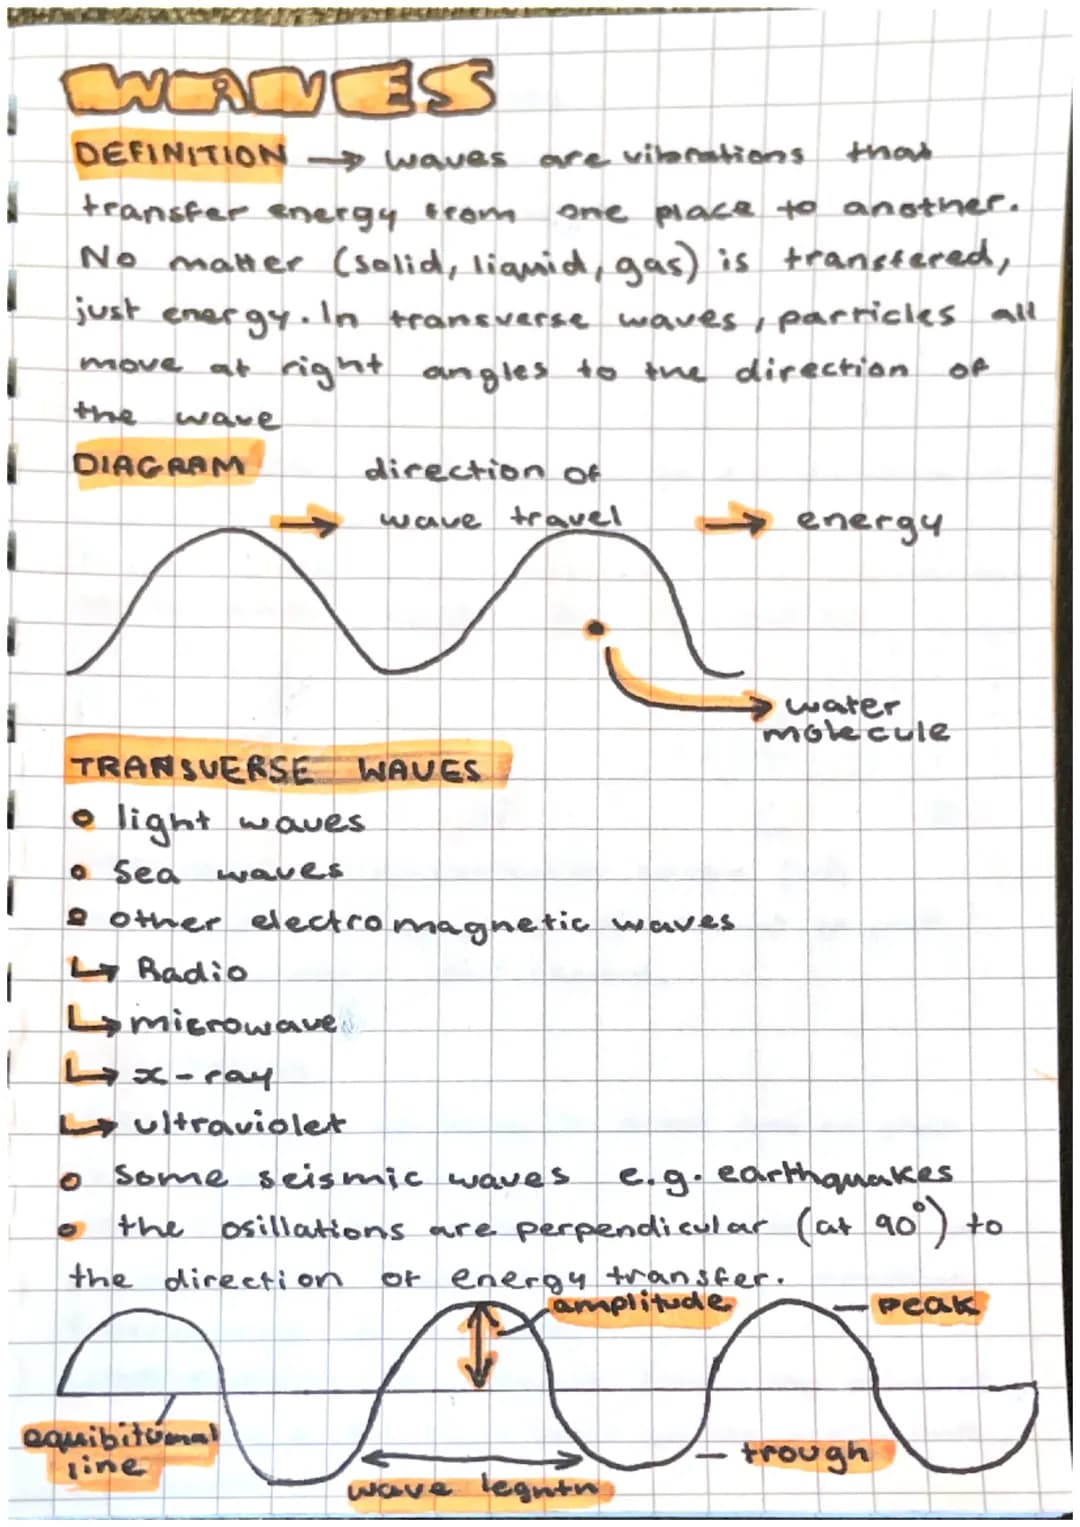 WAVES
DEFINITION → waves are vibrations that
transfer energy from one place to another.
No matter (solid, liquid, gas) is transfered,
just energy. In transverse waves, particles all
move at right angles to the direction of
the wave
DIAGRAM
direction of
→ wave travel → energy
water
molecule
TRANSVERSE WAVES
• light waves
• Sea waves
• other electromagnetic waves
↳ Radio
↳ microwave
↳ x-ray
↳ ultraviolet
• Some seismic waves e.g. earthquakes
• the osillations are perpendicular (at 90°) to
the direction of energy transfer.
amplitude
peak
equibitional
line
trough
wave legnth